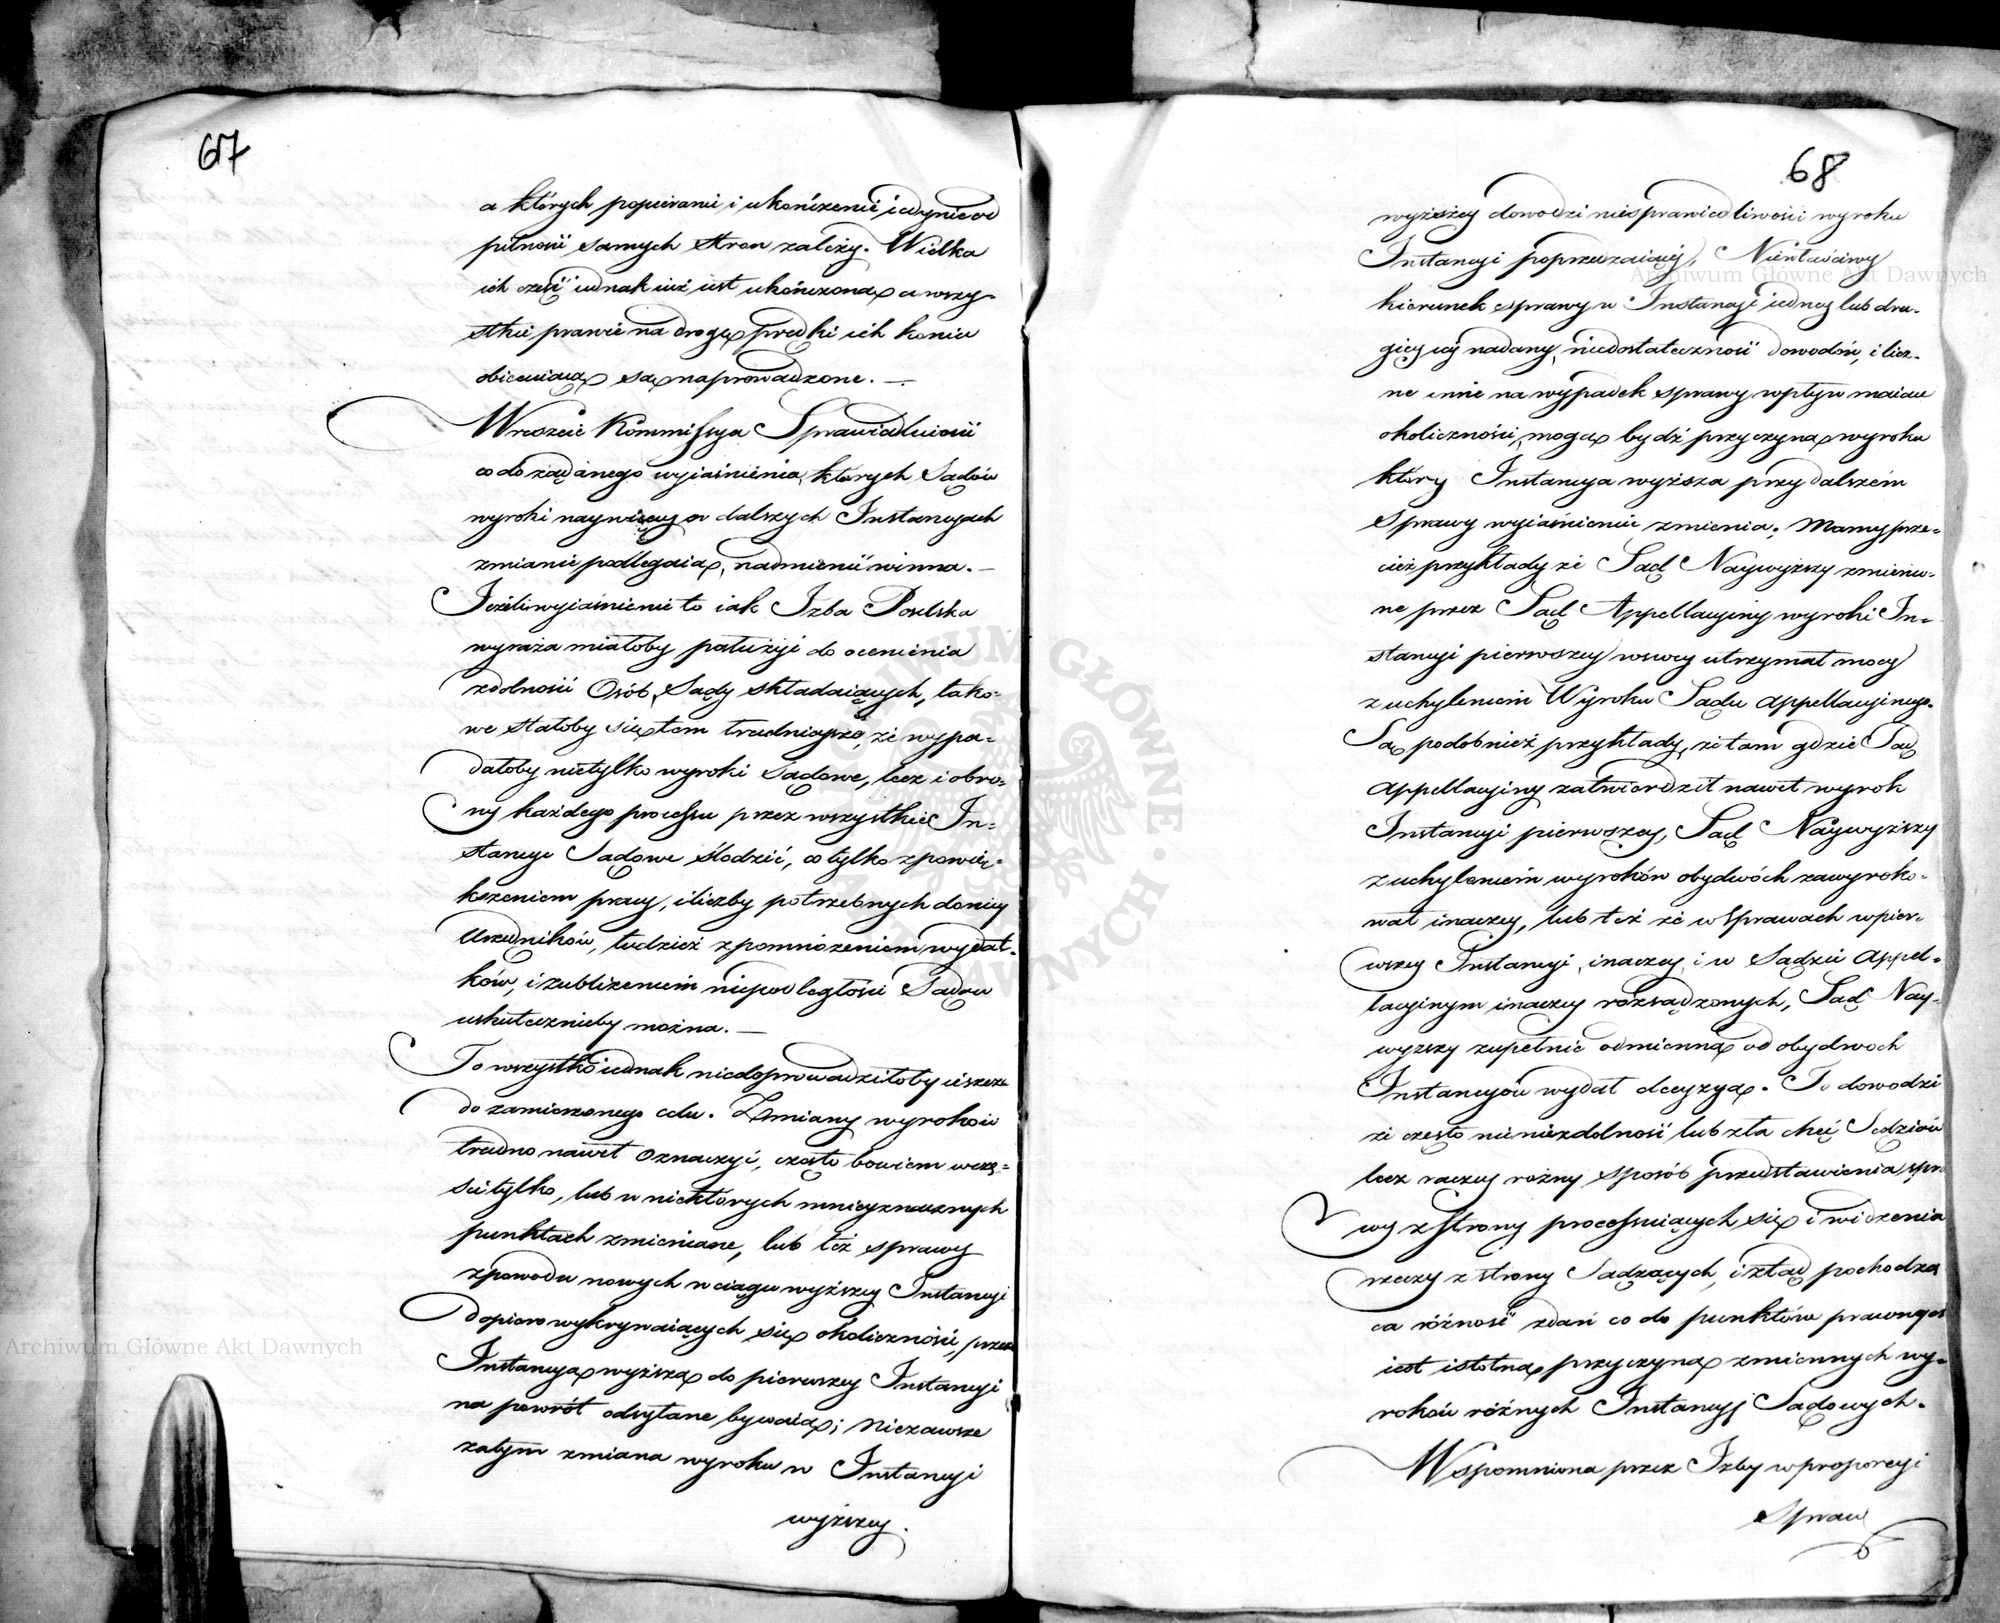 67
a których popieranie i ukończenie iedynie od
pilności samych stron zależy. Wielka
ich część iednak iuż iest ukończoną a wszy-
stkie prawie na drogę prędki ich koniec
obiecuiącą są naprowadzone. —
Wreszcie Kommissya Sprawiedliwości
co do żądanego wyiaśnienia, których Sądów
wyroki naywięcey w dalszych Instancyach
zmianie podlegaią, nadmienić winna. —
Jeżeli wyiaśnienie to iak Izba Poselska
wyraża miałoby posłużyć do ocenienia
zdolności Osób, Sądy składaiących, tako-
we stałoby się tem trudnieysze, że wypa-
dałoby nietylko wyroki Sądowe, lecz i obro-
ny każdego processu przez wszystkie In-
stancye Sądowe śledzić, co tylko z powię-
kszeniem pracy, i liczby potrzebnych do niey
Urzędników, tudzież z pomnożeniem wydat-
ków, i zubliżeniem niepodległości Sądów
uskutecznićby można. —
To wszystko iednak niedoprowadziłoby ieszcze
do zamierzonego celu. Zmiany wyroków
trudno nawet oznaczyć, często bowiem w czę-
ści tylko, lub w niektórych mniey znacznych
punktach zmieniane, lub też sprawy
z powodu nowych w ciągu wyższey Instancyi
dopiero wykrywaiących się okoliczności, przez
Instancyą wyższą do pierwszey Instancyi
na powrót odsyłane bywaią; Niezawsze
zatym zmiana wyroku w Instancyi
wyższey.
68
wyższey dowodzi niesprawiedliwości wyroku
Instancyi poprzedzaiącéy, Niewłaściwy
kierunek sprawy w Instancyi iedney lub dru-
giey iéy nadany, niedostateczność dowodów, i licz-
ne inne na wypadek sprawy wpływ maiące
okoliczności, mogą bydź przyczyną wyroku
który Instancya wyższa przy dalszém
sprawy wyiaśnieniu zmienia; Mamy prze-
cież przykłady że Sąd Naywyższy zmienio-
ne przez Sąd Appellacyiny wyroki In-
stancyi pierwszey w swey utrzymał mocy
z uchyleniem Wyroku Sądu Appellacyinego.
Są podobnież przykłady, że tam gdzie Sąd
Appellacyiny zatwierdził nawet wyrok
Instancyi pierwszey, Sąd Naywyższy
z uchyleniem wyroków obydwóch zawyroko-
wał inaczey, lub też że w Sprawach w pier-
wszey Instancyi, inaczey, i w Sądzie Appel-
lacyinym inaczey rozsądzonych, Sąd Nay-
wyższy zupełnie odmienną od obydwoch
Instancyów wydał decyzyą. To dowodzi
że często nie niezdolność lub zła chęć Sędziów
lecz raczey rożny sposób przedstawienia spra
wy z strony processuiących się i widzenia
rzeczy z strony Sądzących, i ztąd pochodzą
ca różność zdań co do punktów prawnych
iest istotną przyczyną zmiennych wy-
roków różnych Instancyj Sądowych.
Wspomniona przez Izby w proporcyi
Spraw
Archiwum Główne Akt Dawnych
Archiwum Główne Akt Dawnych
ARCHIWUM GŁÓWNE AKT DAWNYCH